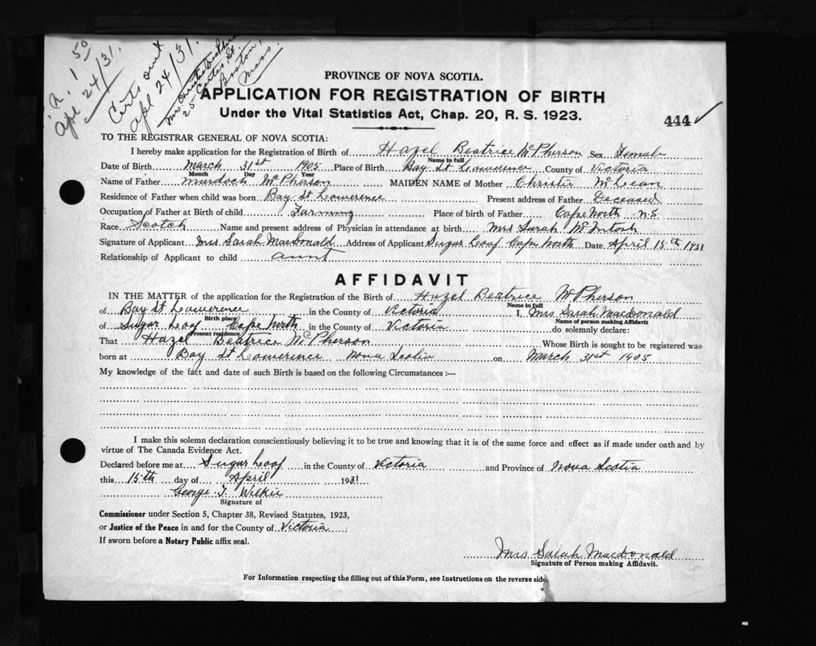 R. 1 50
Apl 24/31.
Certs out
Apl 24/31.
Mrs Christie
25 Curtis St.
Boston,
Mass.
PROVINCE OF NOVA SCOTIA.
APPLICATION FOR REGISTRATION OF BIRTH
Under the Vital Statistics Act, Chap. 20, R. S. 1923.
444 ✓
TO THE REGISTRAR GENERAL OF NOVA SCOTIA:
I hereby make application for the Registration of Birth of Hazel Beatrice McPherson Sex Female
Name in full
Date of Birth March 31st 1905 Place of Birth Bay St Lawerence County of Victoria
Month Day Year
Name of Father Murdoch McPherson MAIDEN NAME of Mother Christie McLean
Residence of Father when child was born Bay St Lawerence Present address of Father Deceased
Occupation of Father at Birth of child Farming Place of birth of Father Cape North N.S
Race Scotch Name and present address of Physician in attendance at birth Mrs Sarah McIntosh
Signature of Applicant Mrs Sarah MacDonald Address of Applicant Sugar Loaf Cape North Date April 15th 1931
Relationship of Applicant to child aunt
AFFIDAVIT
IN THE MATTER of the application for the Registration of the Birth of Hazel Beatrice McPherson
Name in full
of Bay St Lawerence in the County of Victoria I, Mrs Sarah MacDonald
Birth place Name of person making Affidavit
of Sugar Loaf Cape North in the County of Victoria do solemnly declare:
Present residence
That Hazel Beatrice McPherson Whose Birth is sought to be registered was
born at Bay St Lawerence Nova Scotia on March 31st 1905
My knowledge of the fact and date of such Birth is based on the following Circumstances :—
I make this solemn declaration conscientiously believing it to be true and knowing that it is of the same force and effect as if made under oath and by
virtue of The Canada Evidence Act.
Declared before me at Sugar Loaf in the County of Victoria and Province of Nova Scotia
this 15th day of April 1931
George J. Wilkie
Signature of
Commissioner under Section 5, Chapter 38, Revised Statutes, 1923,
or Justice of the Peace in and for the County of Victoria
If sworn before a Notary Public affix seal.
Mrs Sarah Macdonald
Signature of Person making Affidavit.
For Information respecting the filling out of this Form, see Instructions on the reverse side.